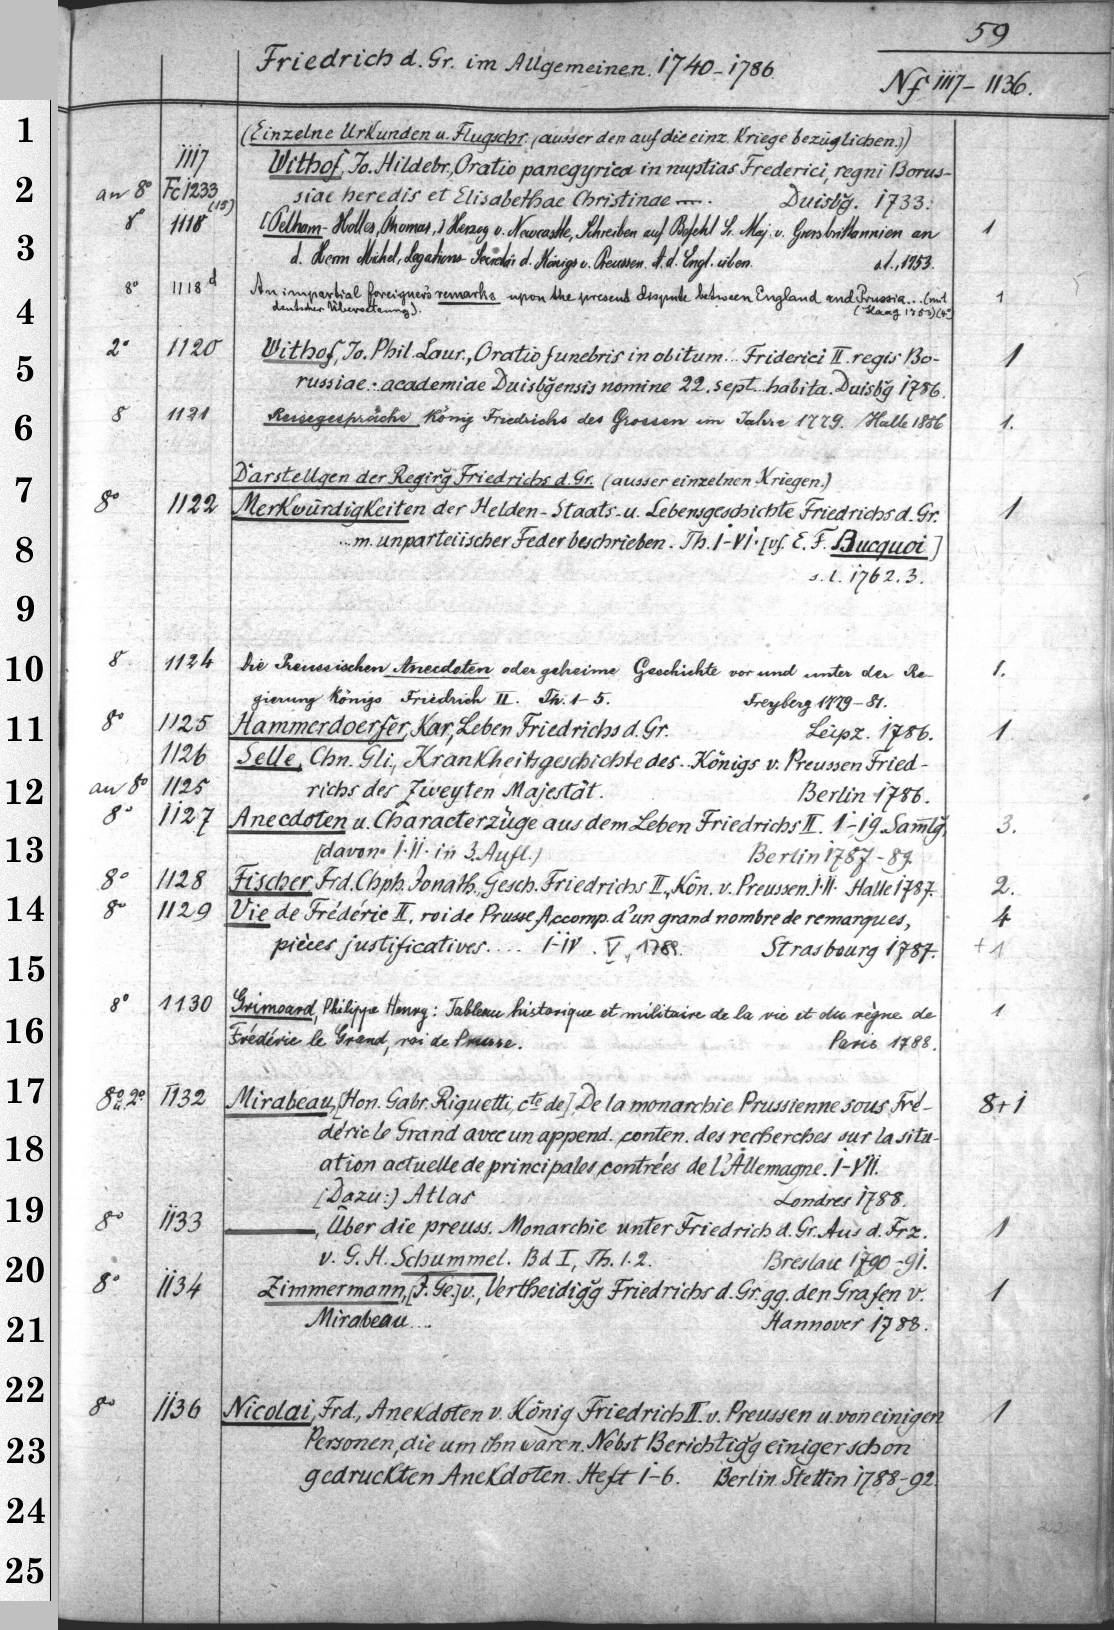 59
Friedrich d. Gr. im Allgemeinen. 1740-1786
Nf 1117-1136.
1
(Einzelne Urkunden u. Flugschr. (ausser den auf die einz. Kriege bezüglichen.))
1117 Withof, Jo. Hildebr., Oratio panegyrica in nuptias Frederici, regni Borus-
2
an 8° Fc 1233 (15) siae heredis et Elisabethae Christinae —. Duisbg. 1733.
8° 1118 [Pelham-Holles, Thomas,] Herzog v. Newcastle, Schreiben auf Befehl Sr. Maj. v. Grossbrittannien an 1
3
d. Herrn Michel, Legations-Secretär d. Königs v. Preussen. A. d. Engl. üben. s.l., 1753.
8° 1118 d An impartial foreigner's remarks upon the present dispute between England and Prussia... (mit 1
4
deutscher Übersetzung). (Haag 1753) (4°)
2° 1120 Withof, Jo. Phil. Laur., Oratio funebris in obitum.. Friderici II. regis Bo- 1
5
russiae.. academiae Duisbg̃ensis nomine 22. sept. habita. Duisbg̃ 1786.
8 1121 Reisegespräche König Friedrichs des Grossen im Jahre 1779. Halle 1886 1.
6
Darstellgen der Regirg̃ Friedrichs d. Gr. (ausser einzelnen Kriegen.)
7
8° 1122 Merkwürdigkeiten der Helden-Staats-u. Lebensgeschichte Friedrichs d. Gr. 1
8
...m. unparteiischer Feder beschrieben. Th. I-VI. [vf. E. F. Bucquoi]
s. l. 1762.3.
9
10
8° 1124 Die Preussischen Anecdoten oder geheime Geschichte vor und unter der Re- 1.
gierung Königs Friedrich II. Th. 1-5. Freyberg 1779-81.
11
8° 1125 Hammerdoerfer, Kar, Leben Friedrichs d. Gr. Leipz. 1786. 1
1126 Selle, Chn. Gli., Krankheitsgeschichte des.. Königs v. Preussen Fried-
12
an 8° 1125 richs des Zweyten Majestät. Berlin 1786.
8° 1127 Anecdoten u. Characterzüge aus dem Leben Friedrichs II. 1-19. Sam̃lg. 3.
13
(davon I.II. in 3. Aufl.) Berlin 1787-89
8° 1128 Fischer, Frd. Chph. Jonath., Gesch. Friedrichs II., Kön. v. Preussen. I.II. Halle 1787. 2.
14
8° 1129 Vie de Frédéric II, roi de Prusse Accomp. d'un grand nombre de remarques, 4
pièces justificatives.... I-IV. V, 1789. Strasbourg 1787. +1
15
8° 1130 Grimoard, Philippe Henry: Tableau historique et militaire de la vie et du règne de 1
16
Frédéric le Grand, roi de Prusse. Paris 1788.
17
8° u. 2° 1132 Mirabeau, [Hon. Gabr. Riquetti, cte de] De la monarchie Prussienne sous Fré- 8+1
déric le Grand avec un append. conten. des recherches sur la situ-
18
ation actuelle de principales contrées de l'Allemagne. I-VII.
(Dazu:) Atlas Londres 1788.
19
8° 1133 ———, Über die preuss. Monarchie unter Friedrich d. Gr. Aus d. Frz. 1
v. G. H. Schummel. Bd I, Th. 1.2. Breslau 1790-91.
20
8° 1134 Zimmermann, [J. Ge.] v., Vertheidigg̃ Friedrichs d. Gr. gg. den Grafen v. 1
21
Mirabeau... Hannover 1788.
22
8° 1136 Nicolai, Frd., Anekdoten v. König Friedrich II. v. Preussen u. von einigen 1
23
Personen, die um ihn waren. Nebst Berichtigg̃ einiger schon
gedruckten Anekdoten. Heft 1-6. Berlin. Stettin 1788-92.
24
25